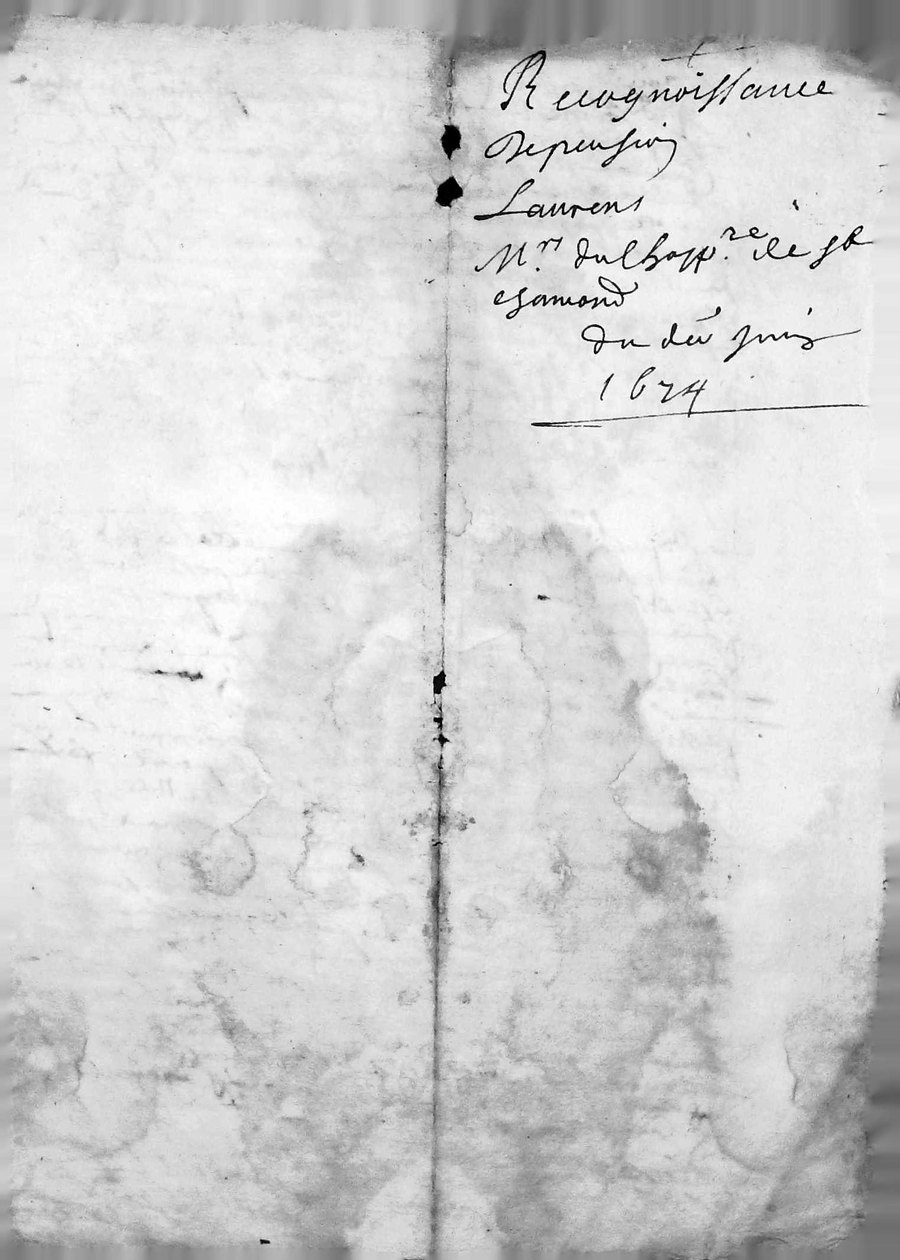 Recognoissance
depension
Laurens
M.rs du lhosp.re de st
chamond
du du juin
1674